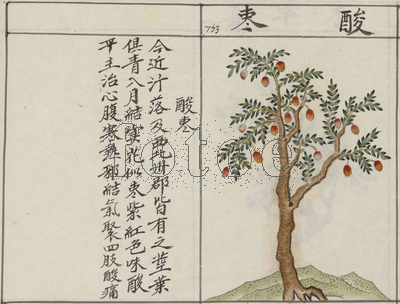 酸棗
酸棗
今近汴落及西北州郡皆有之莖葉
俱青八月結實花似棗紫紅色味酸
平主治心腹寒熱邪結氣聚四肢酸痛